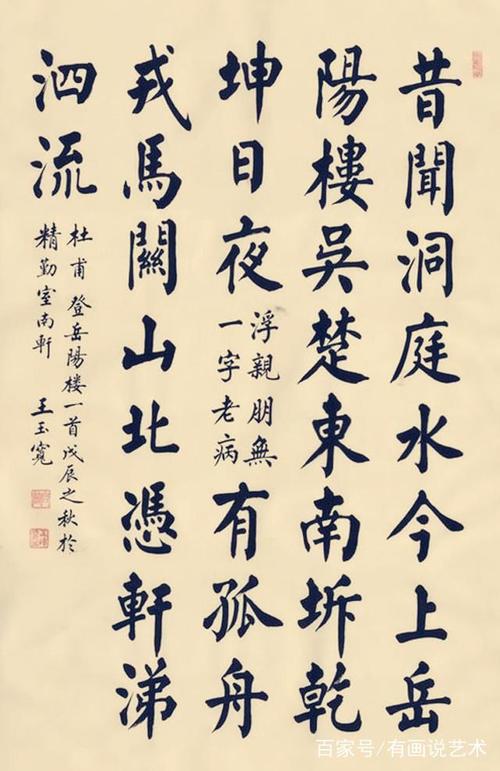 昔聞洞庭水今上岳
陽樓吳楚東南坼乾
坤日夜
浮親朋無
一字老病
有孤舟
戎馬關山北憑軒涕
泗流
杜甫登岳陽楼一首戊辰之秋於
精勤室南軒 王玉寬
百家号/有画说艺术